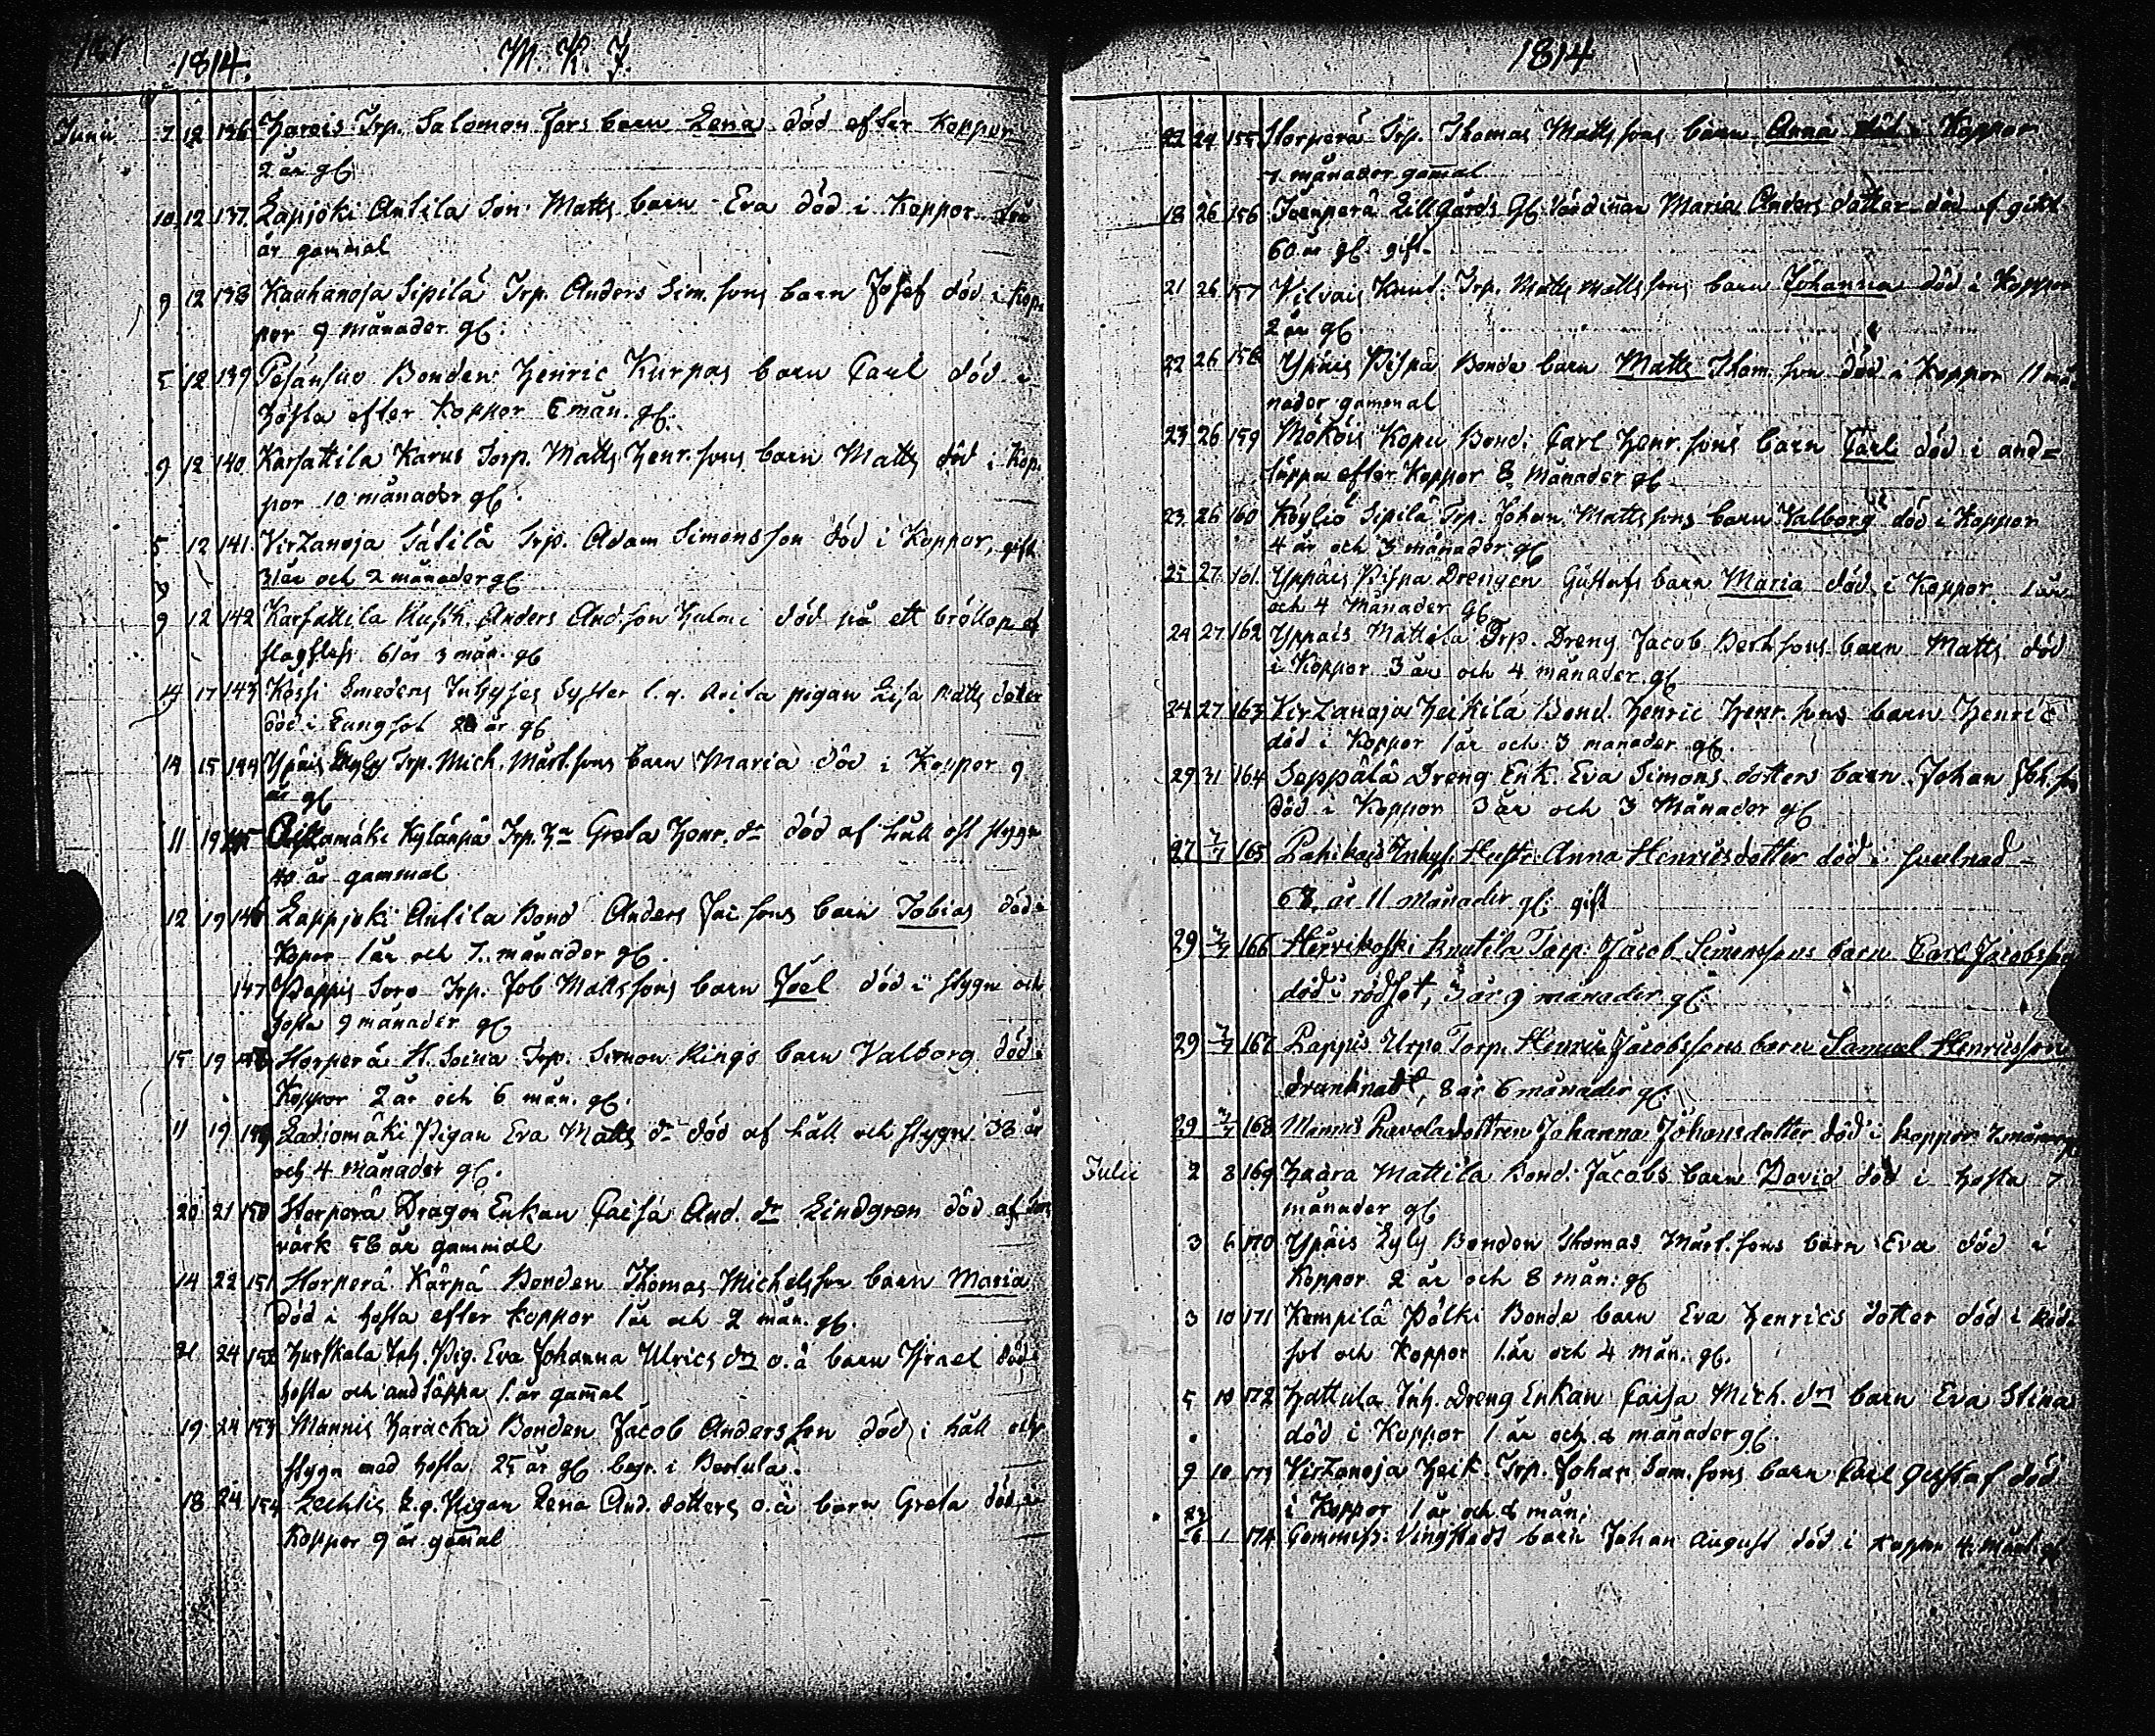 1814. M. K. J.
Junii 7 12 136 Hareis Trp. Salomon Jors barn Lena död efter Koppor
2 år gl.
10 12 137. Lapjoki Antila Son Matts barn Eva död i Koppor
år gammal
9 12 138 Kauhanoja Sipilä Trp. Anders Sim.sons barn Josef död i Kop
por 9 månader gl.
5 12 139 Pesänsuo Bonden Henric Kurpas barn Carl död i
hosta efter Koppor 6 mån. gl.
9 12 140 Karsattila Karus Torp. Matts Henr.sons barn Matts död i Kop
por 10 månader gl.
5 12 141. Virtzanoja Sätilä Trp. Adam Simonsson död i Koppor, gift
31 år och 2 månader gl.
9 12 142 Karsattila Rusth. Anders And.son Hulmi död på ett bröllop af
slagfluss 61 år 3 mån. gl
14 17 143 Köyhi Smedens Inhyses Syster l. q. Avita pigan Lisa Matts dotter
död i Lungsot 28 år gl
14 15 144 Ypäis Lyly Trp. Mich. Märt.sons barn Maria död i Koppor 9
år gl
11 19 145 Kylänpä Trp. Hu Greta Henr. dr död af håll och stygn
40 år gammal
12 19 146 Lappjoki Antila Bond Anders Jac sons barn Tobias död i
Kopor 1 år och 7. månader gl.
147 Pappis Soro Trp. Job Mattssons barn Joel död i stygn och
hosta 9 månader gl
15 19 148 Horperä H. Soina Trp. Simon Kings barn Valborg död i
Koppor 2 år och 6 mån. gl.
11 19 149 Ladiomäki Pigan Eva Matts dr död af håll och stygn 38 år
och 4 månader gl.
20 21 150 Horperä Dragon Enkan Caisa And. dr Lindgren död af
värk 58 år gammal
14 22 151 Horperä Kärpä Bonden Thomas Michelsson barn Maria
Död i hosta efter koppor 1 år och 2 mån. gl.
21 24 152 Hurskala Inh. Pig. Eva Johanna Ulrics drs o. ä barn Israel död
hosta och andtäppa 1. år gamal
19 24 153 Mannis Haracka Bonden Jacob Andersson död i håll och
stygn med hosta 25 år gl begr. i Bortula.
18 24 154 Lechtis L. q. Pigan Lena And. dotters o. ä barn Greta död i
Koppor 9 år gamal
1814
22 24 155 Horperä Trp. Thomas Mattssons barn Anna död i Koppor
7 månader gamal
18 26 156 Isoenperä Lillgårds Gl. Värdinan Maria Anders dotter död af gikt
60 år gl. gift.
21 26 157 Vilvais Knut. Trp. Matts Mattssons barn Johanna död i Koppor
2 år gl
22 26 158 Ypäis Pispa Bonde barn Matts Thom.son död i Koppor 11 må
nader gammal
23 26 159 Mököis Kopu Bond. Carl Henr.sons barn Carl död i and=
täppa efter Koppor 8 Månader gl
23 26 160 Köyliö Sipilä Trp. Johan Mattssons barn Valborg död i Koppor
4 år och 3 månader gl
25 27 161. Yppäis Pispa Drengen Gustafs barn Maria död i Koppor 1 år
och 4 Månader Gl
24 27 162 Yppäis Mattala Trp. Dreng Jacob Berthsons barn Matts död
i Koppor 3 år och 4 månader gl
24 27 163 Virtzanoja Heikilä Bond. Henric Henr.sons barn Henric
död i Koppor 1 år och 3 månader gl.
29 31 164 Seppälä Dreng Enk. Eva Simons dotters barn Johan Joh.son
död i Koppor 3 år och 3 Månader gl
27 3/7 165 Pahikais Inhys. Hustr. Anna Henricsdotter död i svulnad
68 år 11 Månader gl. gift
29 3/7 166 Hirvikoski Knutila Torp. Jacob Simonssons barn Carl Jacobsson
död i rödsot, 3 år 9 månader gl.
29 3/7 167 Pappis Urpo Torp. Henric Jacobssons barn Samuel Henricsson
drunknadt, 8 år 6 månader gl.
29 3/7 168 Mannis Pavola dottren Johanna Johansdotter död i koppor 7 månar gl
Julii 2 8 169 Haara Mattila Bond. Jacobs barn David död i hosta 7
månader gl
3 6 170 Ypäis Lyly Bonden Thomas Märt.sons barn Eva död i
Koppor 2 år och 8 mån. gl
3 10 171 Kempilä Pölki Bonde barn Eva Henrics dotter död i Röd
sot och Koppor 1. år och 4 mån. gl.
5 10 172 Hattula Inh. Dreng Enkan Caisa Mich. drs barn Eva Stina
död i Koppor 1 år och 2 månader gl.
9 10 173 Virtzanoja Heik. Trp. Johan Sam.sons barn Carl Gustaf död
i Koppor 1 år och 2 mån:
23/6 1 174 Commiss: Vingstedt barn Johan August död i Koppor 4. mån. gl